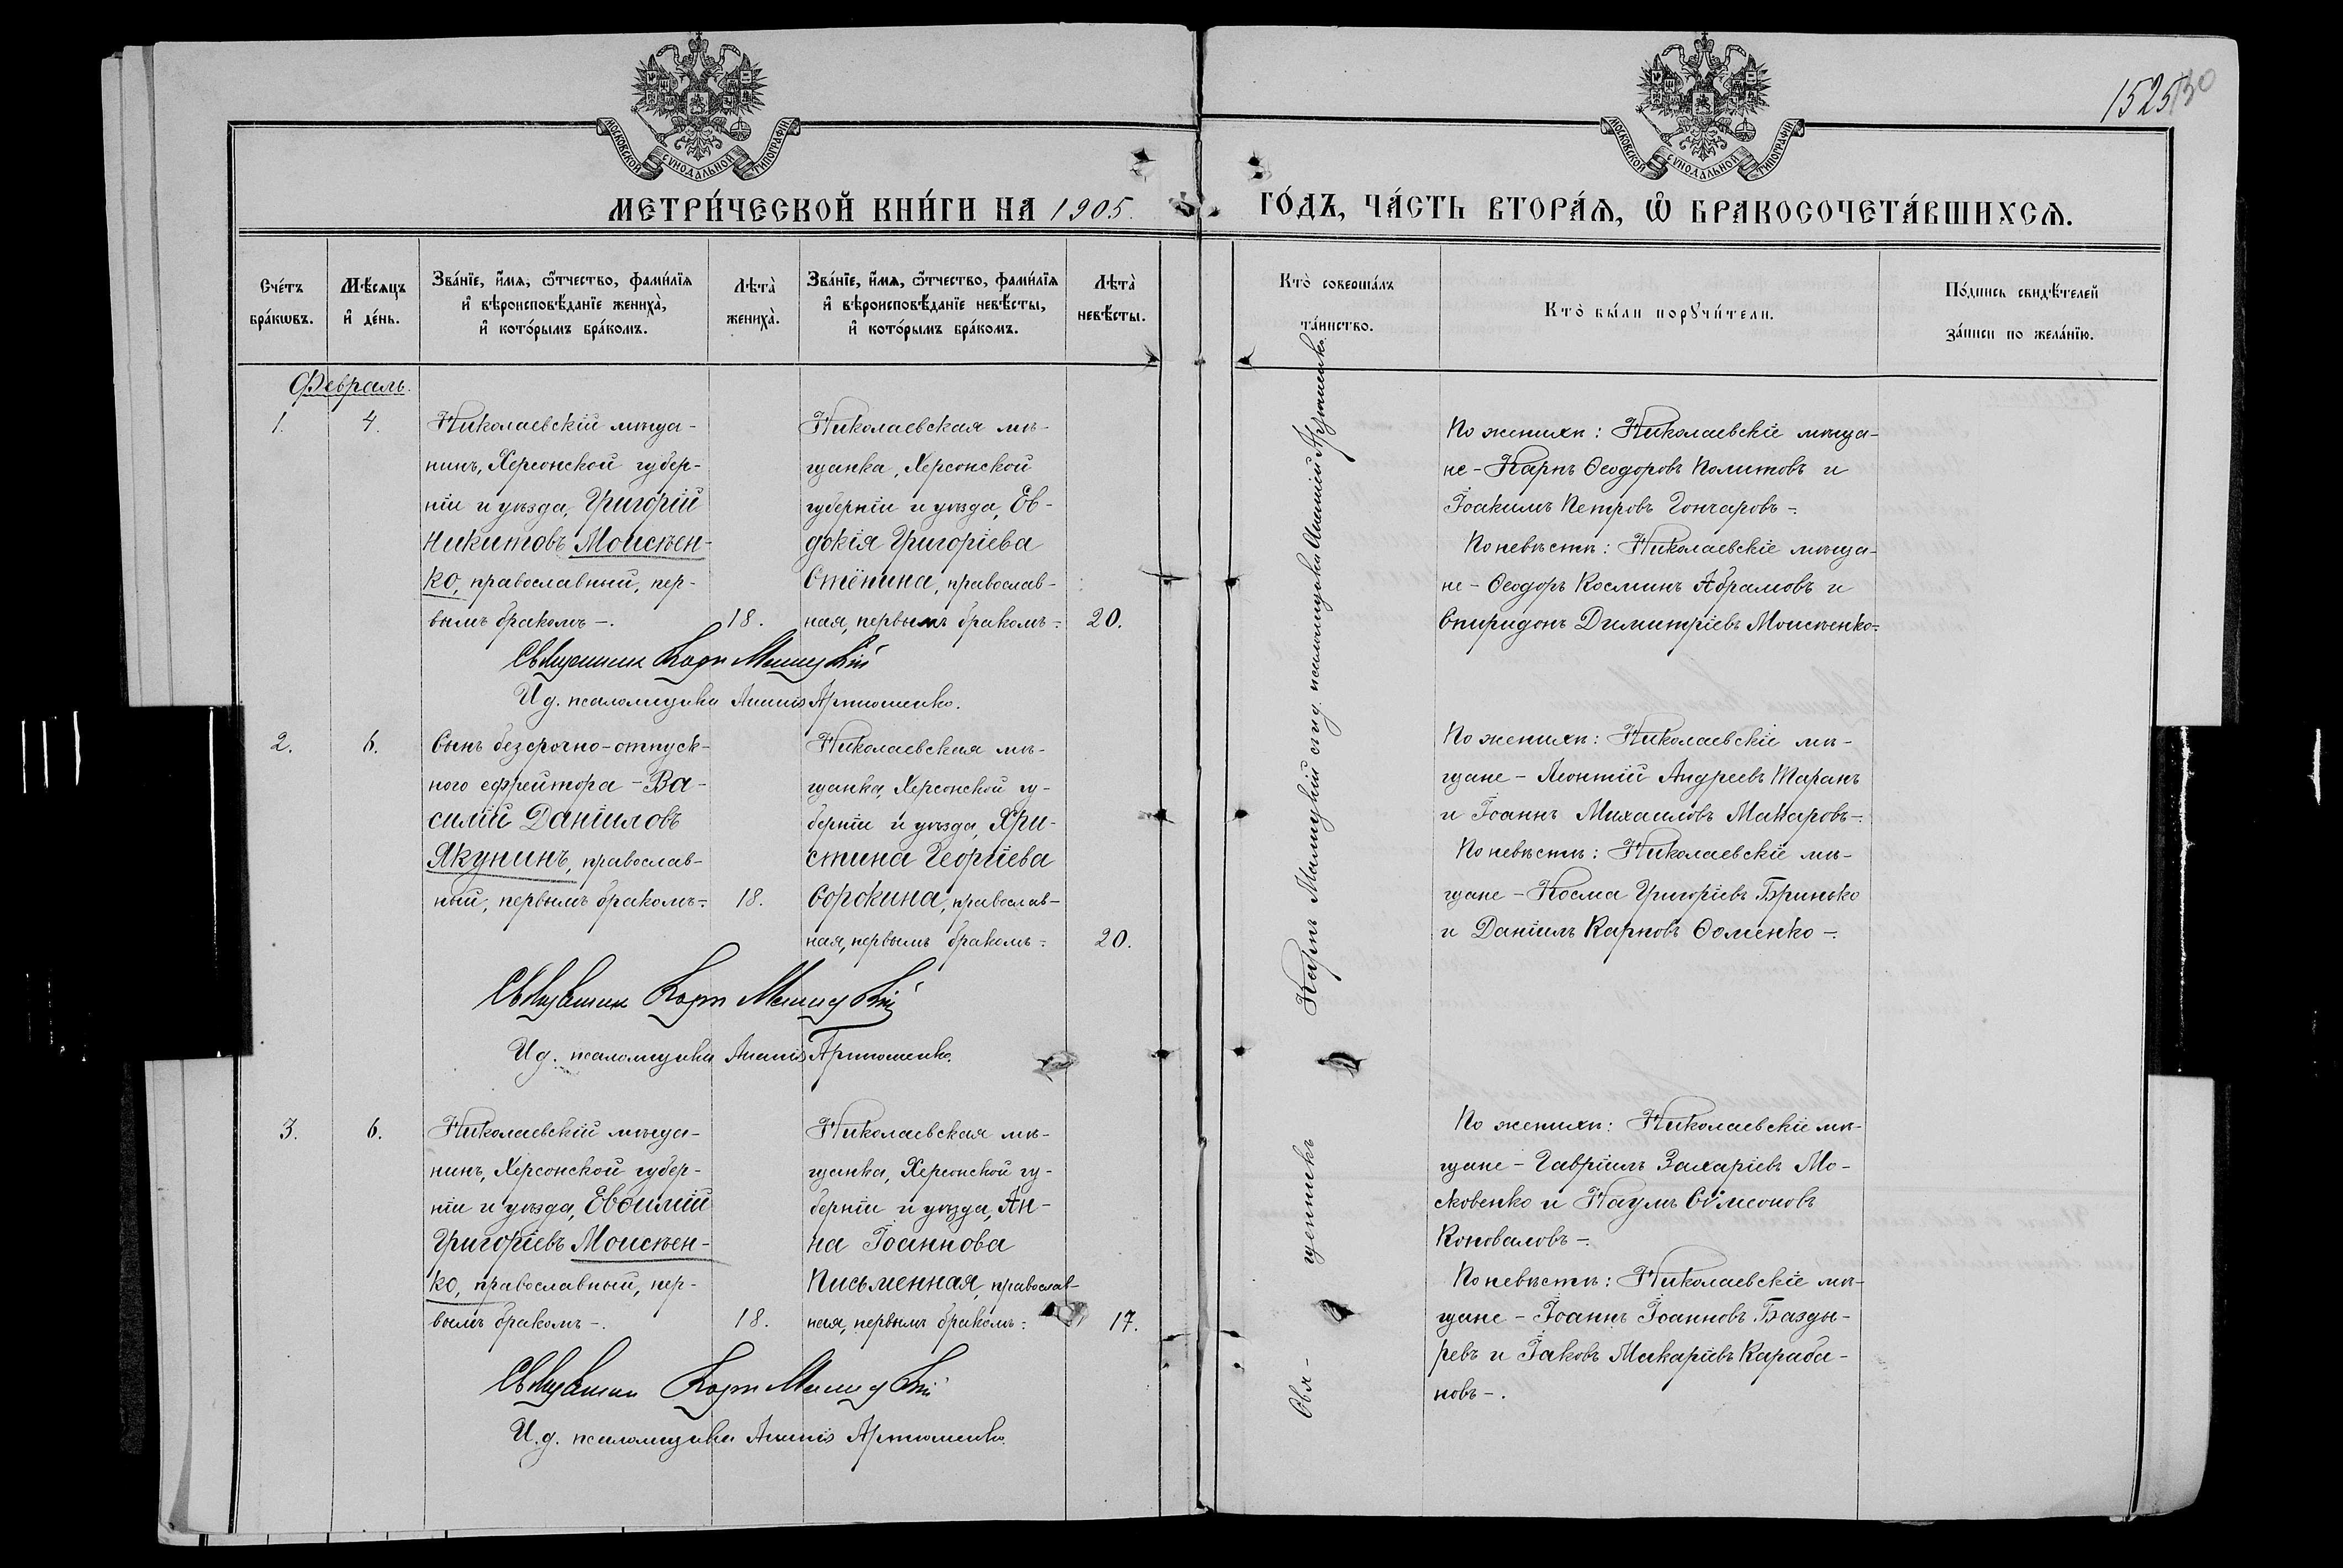 152
130
МОСКОВСКОЙ СѴНОДАЛЬНОЙ ТИПОГРАФІИ
МОСКОВСКОЙ СѴНОДАЛЬНОЙ ТИПОГРАФІИ
МЕТРИ́ЧЕСКОЙ КНИ́ГИ НА 1905.
ГО́ДЪ, ЧА́СТЬ ВТОРА́Ѧ, Ѽ БРАКОСОЧЕТА́ВШИХСѦ.
Сче́тъ бра́кѡвъ.
Мѣ́сѧцъ и҆ де́нь.
Зва́нїе, и҆́мѧ, ѻ҆́тчество, фами́лїѧ
и҆ вѣроисповѣ́данїе жениха̀,
и҆ кото́рымъ бра́комъ.
Лѣта̀ жениха̀.
Зва́нїе, и҆́мѧ, ѻ҆́тчество, фами́лїѧ
и҆ вѣроисповѣ́данїе невѣ́сты,
и҆ кото́рымъ бра́комъ.
Лѣта̀ невѣ́сты.
Кто̀ соверша́лъ
та́инство.
Кто̀ бы́ли порꙋчи́тели.
По́дпись свидѣ́телей
за́писи по жела́нїю.
Февраль.
1.
4.
Николаевскій мѣща-
нинъ, Херсонской губер-
ніи и уѣзда, Григорій
Никитовъ Моисѣен-
ко, православный, пер-
вымъ бракомъ -.
18.
Николаевская мѣ-
щанка, Херсонской
губерніи и уѣзда, Ев-
докія Григоріева
Стёпина, православ-
ная, первымъ бракомъ -.
20.
По женихѣ: Николаевскіе мѣща-
не - Карпъ Ѳеодоровъ Политовъ и
Іоакимъ Петровъ Гончаровъ -.
По невѣстѣ: Николаевскіе мѣща-
не - Ѳеодоръ Косминъ Абрамовъ и
Спиридонъ Димитріевъ Моисѣенко -.
Священник Карп
И д. псаломщика Ананій Артюшенко.
2.
6.
Сынъ безсрочно-отпуск-
ного ефрейтора - Ва-
силій Даніиловъ
Якунинъ, православ-
ный, первымъ бракомъ -.
18.
Николаевская мѣ-
щанка, Херсонской гу-
берніи и уѣзда, Хри-
стина Георгіева
Сорокина, православ-
ная, первымъ бракомъ -.
20.
По женихѣ: Николаевскіе мѣ-
щане - Леонтій Андреевъ Таранъ
и Іоаннъ Михаиловъ Макаровъ -.
По невѣстѣ: Николаевскіе мѣ-
щане - Косма Григоріевъ Бринько
и Даніилъ Карповъ Ѳоменко -.
Священник Карп
И д. псаломщика Ананій Артюшенко.
3.
6.
Николаевскій мѣща-
нинъ, Херсонской губер-
ніи и уѣзда, Евѳимій
Григоріевъ Моисѣен-
ко, православный, пер-
вымъ бракомъ -.
18.
Николаевская мѣ-
щанка, Херсонской гу-
берніи и уѣзда, Ан-
на Іоаннова
Письменная, православ-
ная, первымъ бракомъ -.
17.
По женихѣ: Николаевскіе мѣ-
щане - Гавріилъ Захаріевъ Мо-
сковенко и Наумъ Сѵмеоновъ
Коноваловъ -.
По невѣстѣ: Николаевскіе мѣ-
щане - Іоаннъ Іоанновъ Базды-
ревъ и Іаковъ Макаріевъ Караба-
новъ -.
Священник Карп
И.д. псаломщика Ананій Артюшенко.
Свя- щенникъ Карпъ и д. псаломщика Ананій Артюшенко.